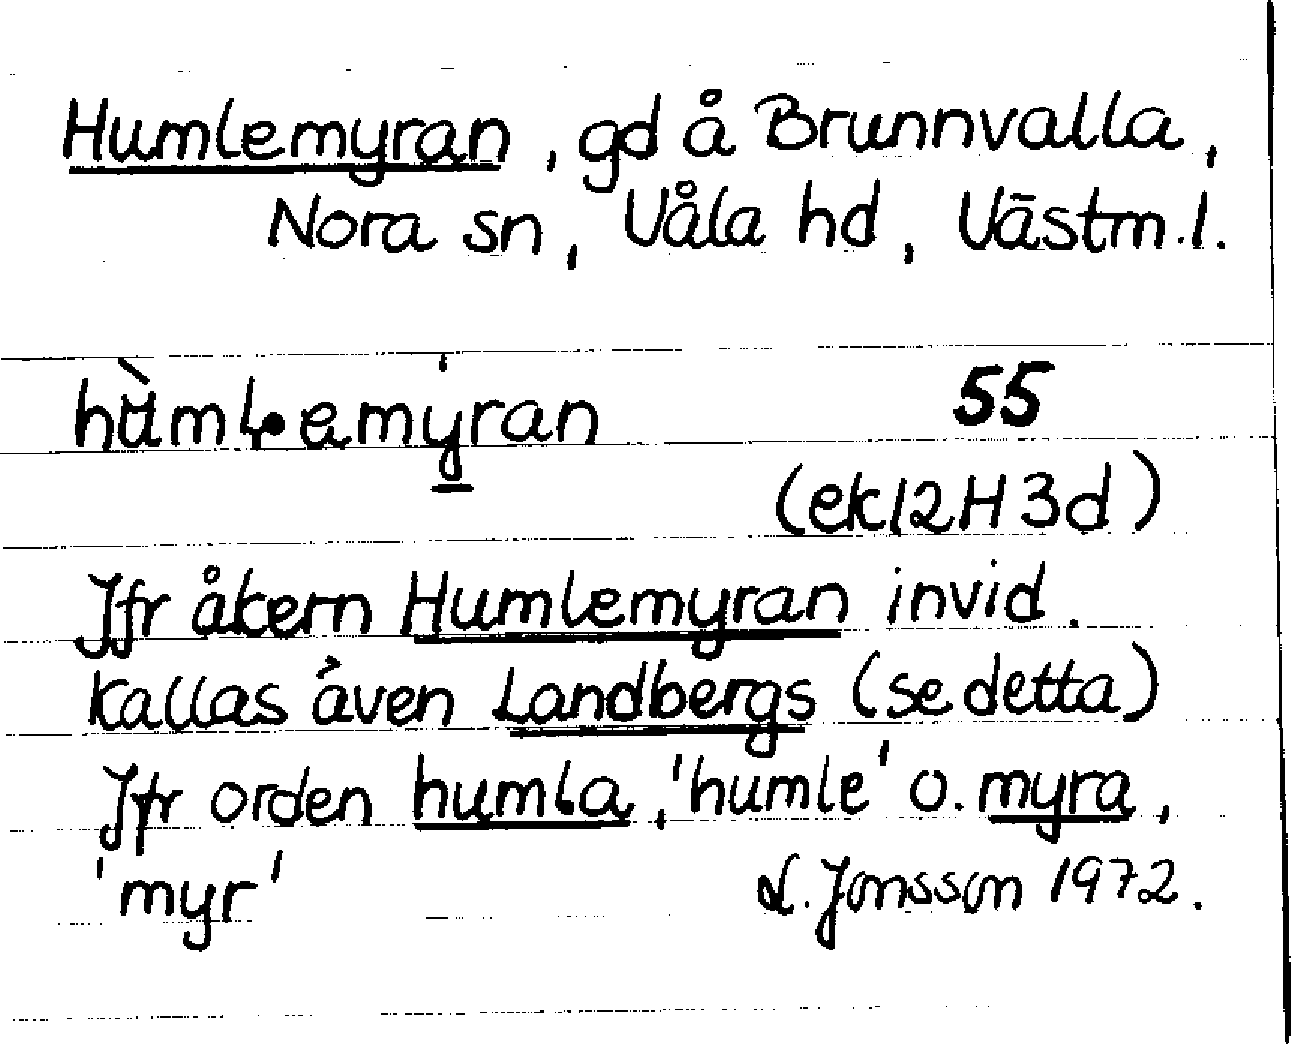 Humlemyran, gd å Brunnvalla,
Nora sn, Våla hd, Västm.l.
hùmlemyran 55
(ek 12H3d)
Jfr åkern Humlemyran invid.
Kallas även Landbergs (se detta)
Jfr orden humla, 'humle' o. myra,
'myr' L. Jonsson 1972.